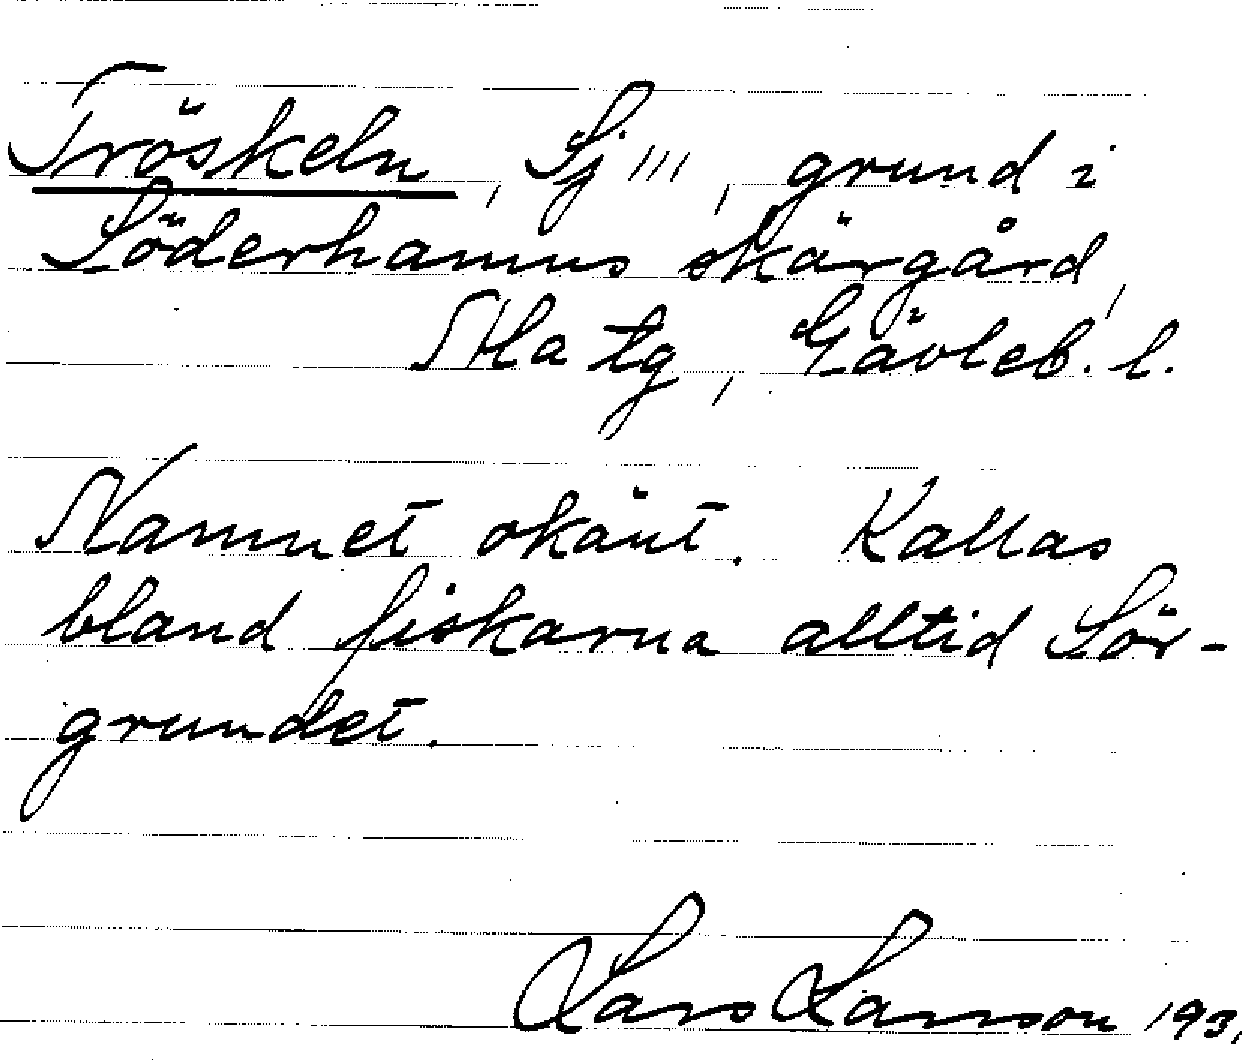 Tröskeln, Sj''', grund i
Söderhamns skärgård,
Ala tg, Gävleb. l.
Namnet okänt. Kallas
bland fiskarna alltid Sör-
grundet.
Lars Larsson 193